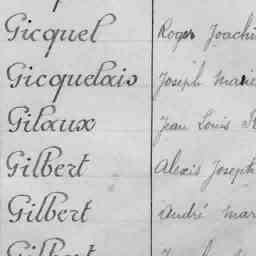 Gicquel Roger Joachi
Gicquelais Joseph Marie
Gilaux Jean Louis
Gilbert Alexis Joseph
Gilbert André Mar
Gilbert